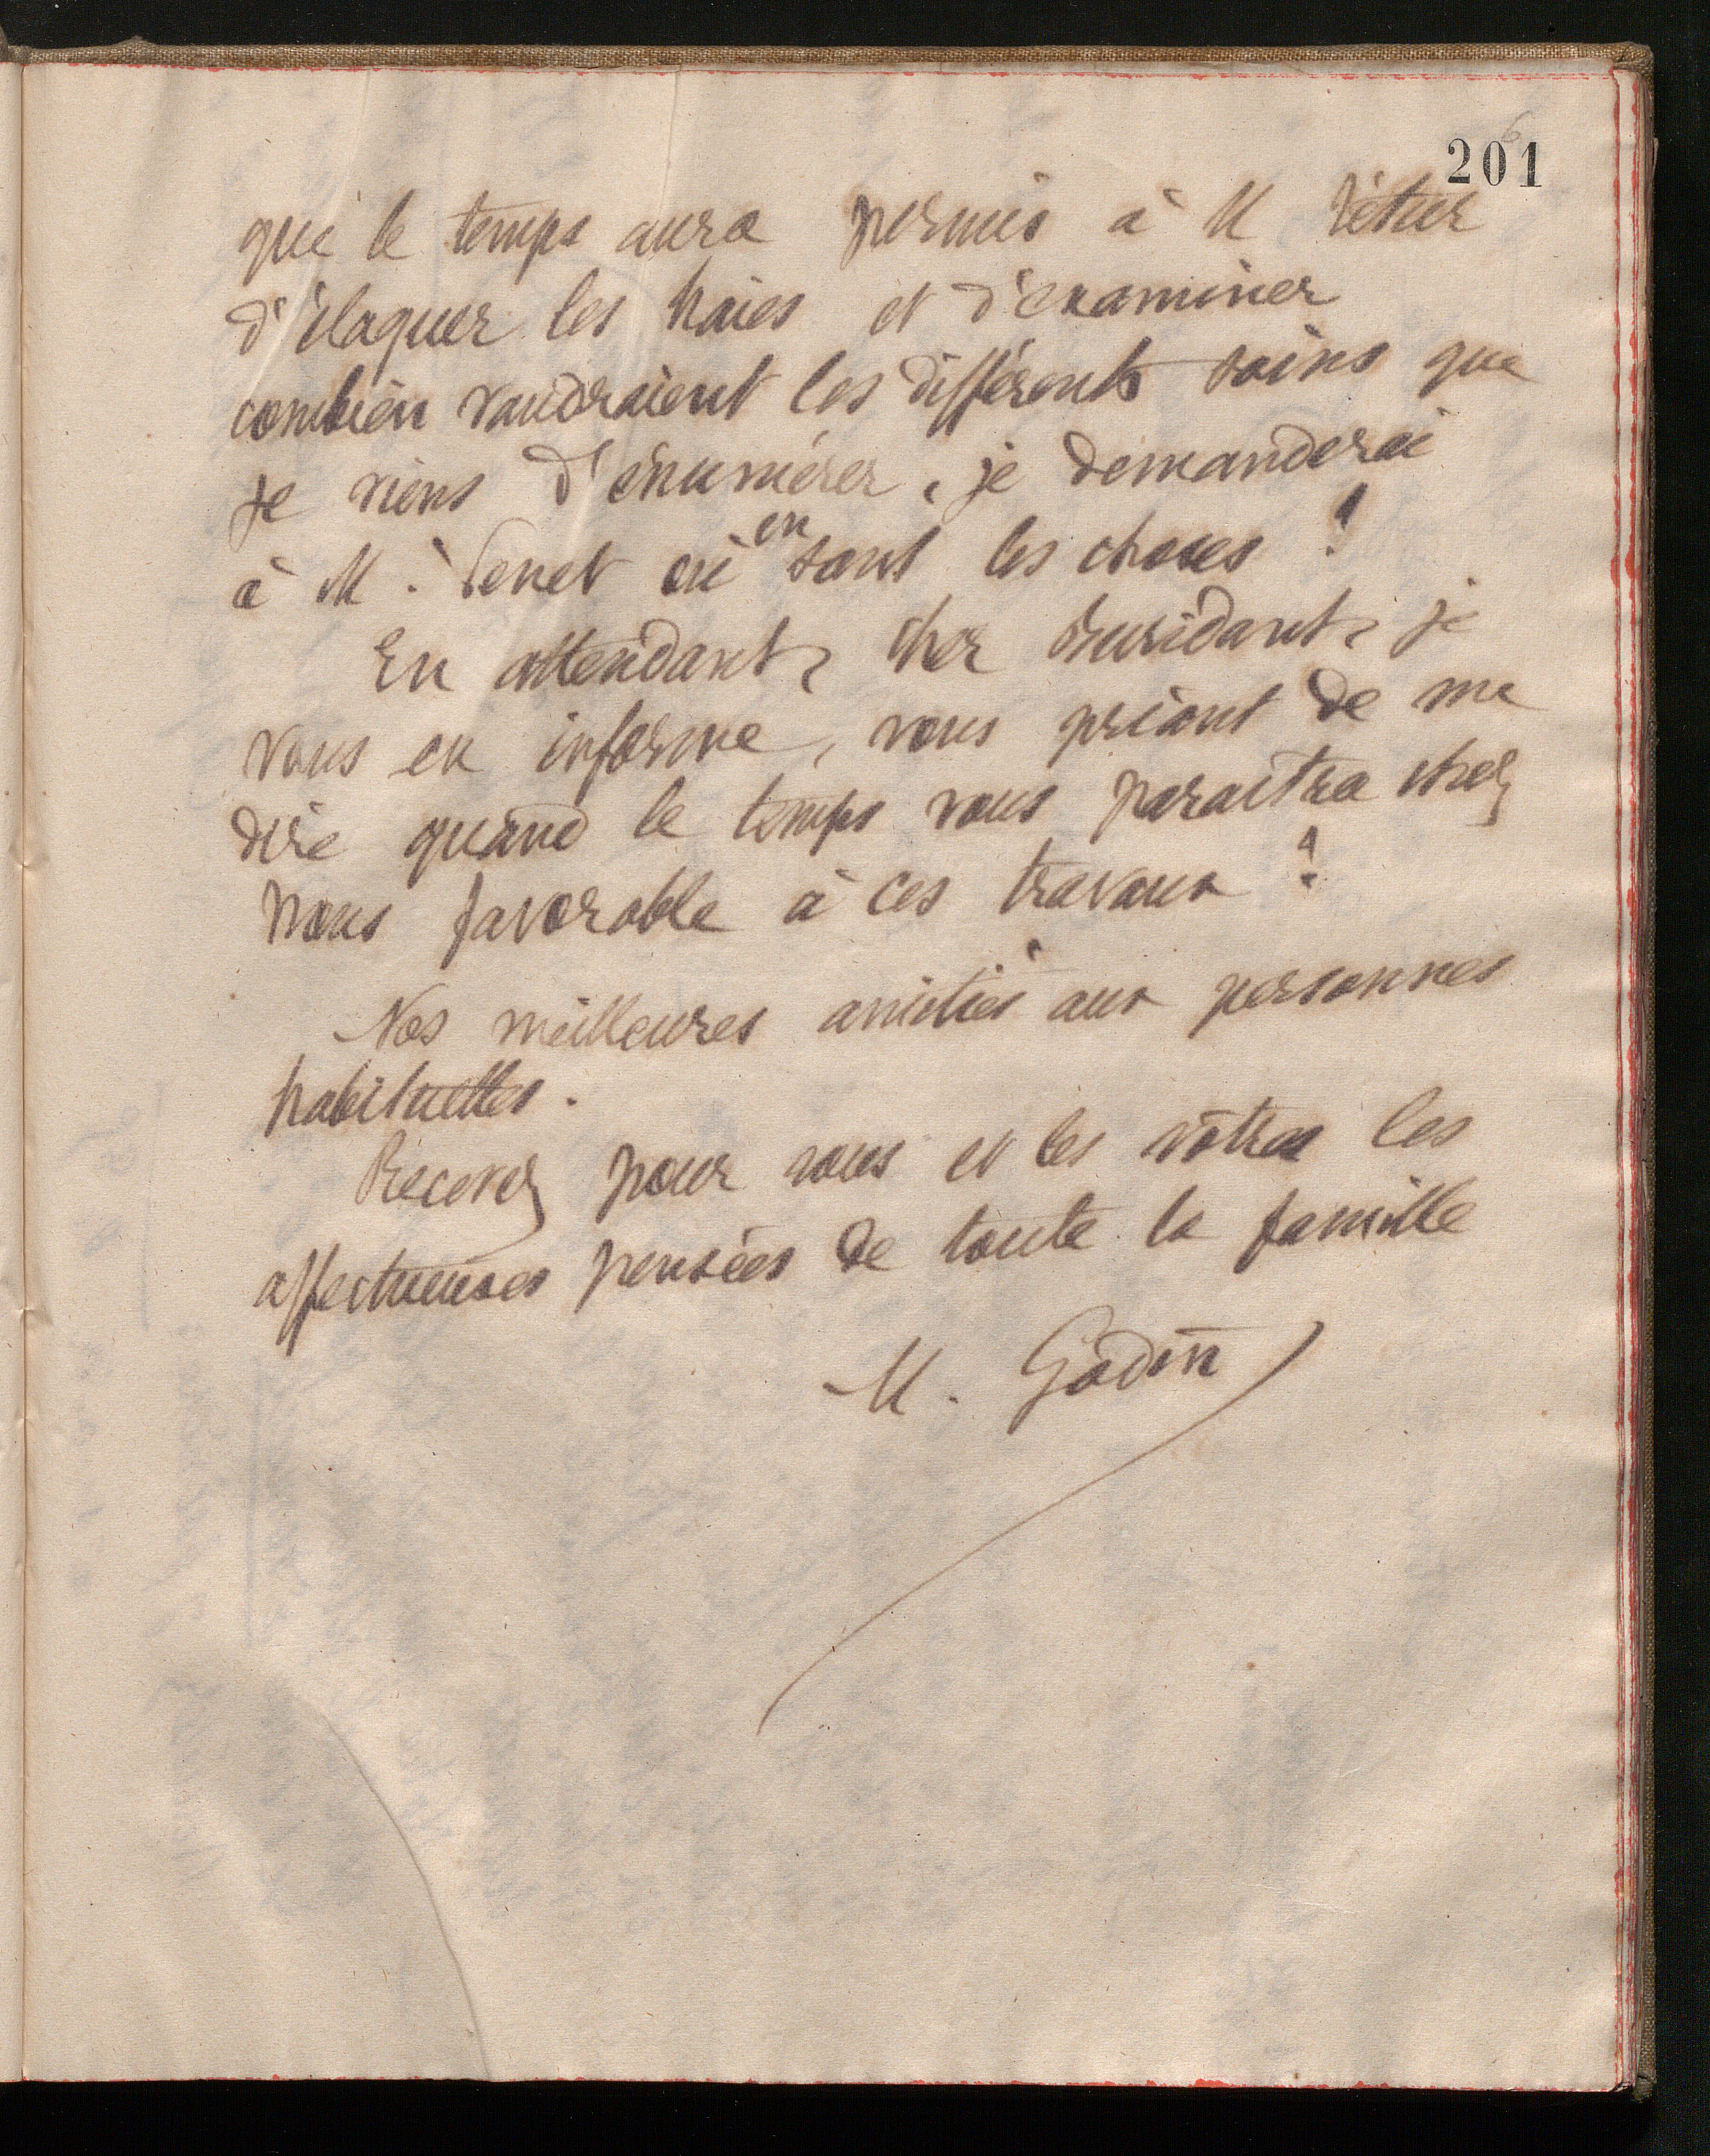 201
6
que le temps aura permis à M
d'élaguer les haies et d'examiner
combien vaudraient les différents soins que
je viens d'énumérer, je demanderai
à M. Penet où en sont les choses ?
En attendant, cher Buridant, je
vous en informe, vous priant de me
dire quand le temps vous paraîtra chez
nous favorable à ces travaux ?
Nos meilleures amitiés aux personnes
habituelles.
Recevez pour vous et les vôtres les
affectueuses pensées de toute la famille
M. Godin